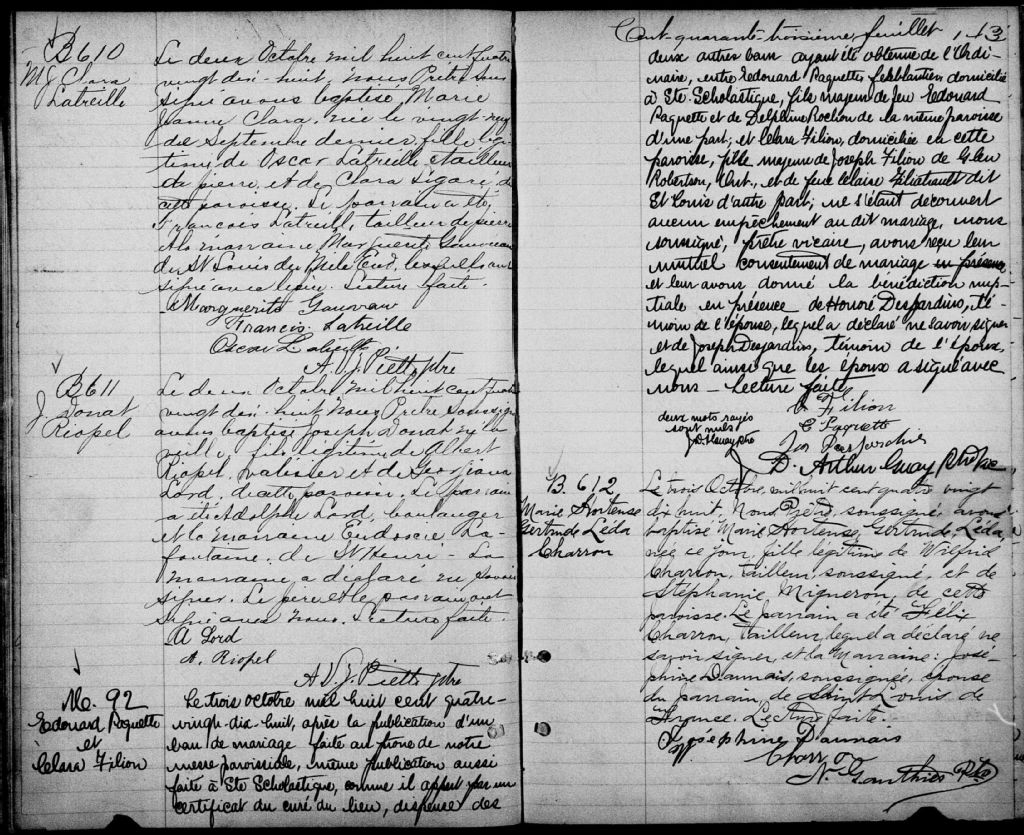 B610
M. J. Clara
Latreille
Le deux Octobre mil huit cent quatre
vingt dix-huit, nous Prêtre sous
signé avons baptisé, Marie
Jeanne Clara, née le vingt neuf
de Septembre dernier, fille légi-
time de Oscar Latreille, tailleur
de pierre, et de Clara Sigari, de
cette paroisse. Le parrain a été
François Latreill, tailleur de pierre
et la marraine Marguerite Gauvreau
de St Louis du Mile End, lesquels ont
signé avec le père. Lecture faite.
Marguerite Gauvreau
Francis Latreille
Oscar Latreille
A. V. J. Piette ptre
B611
J. Donat
Riopel
Le deux Octobre mil huit cent quatre
vingt dix-huit Nous Prêtre soussigné
avons baptisé Joseph Donat né la
veille, fils légitime de Albert
Riopel, et de Georgiana
Lord, de cette paroisse. Le parrain
a été Adolphe Lord, boulanger
et la marraine Eudoxie La-
fontaine, de St Henri - La
marraine a déclaré ne savoir
signer. Le père et le parrain ont
signé avec nous. Lecture faite.
A Lord
A. Riopel
A V. J. Piette ptre
M. 92
Edouard Paquette
et
Clara Filion
Le trois octobre mil huit cent quatre-
vingt-dix-huit, après la publication d'un
ban de mariage faite au prône de notre
messe paroissiale, même publication aussi
faite à Ste Scholastique, comme il appert par un
certificat du curé du lieu, dispense des
Cent-quarante-troisième feuillet 143
deux autres bans ayant été obtenue de l'Ordi-
naire, entre Edouard Paquette ferblantier domicilié
à Ste. Scholastique, fils majeur de feu Edouard
Paquette et de Delphine Rochon de la même paroisse
d'une part; et Clara Filion, domiciliée en cette
paroisse, fille majeure de Joseph Filion de Glen
Robertson, Ont., et de feue Elaise Filiatrault dit
St Louis d'autre part; ne s'étant découvert
aucun empêchement au dit mariage, nous
soussigné, prêtre vicaire, avons reçu leur
mutuel consentement de mariage en présence
et leur avons donné la bénédiction nup-
tiale en présence de Honoré Desjardins, té-
moin de l'épouse, lequel a déclaré ne savoir signer
et de Joseph Desjardins, témoin de l'époux,
lequel ainsi que les époux a signé avec
nous - Lecture faite
C Filion
E Paquette
Jos Desjardins
deux mots rayés
sont nuls
D. Arthur Guay Ptre
B. 612
Marie Hortense
Gertrude Léda
Charron
Le trois Octobre, mil huit cent quatre vingt
dix huit, Nous Prêtre, soussigné, avons
baptisé Marie Hortense, Gertrude, Léda,
née ce jour, fille légitime de Wilfrid
Charron, tailleur, soussigné, et de
Stéphanie Migneron, de cette
paroisse. Le parrain a été Félix
Charron, tailleur, lequel a déclaré ne
savoir signer, et la Marraine: José-
phine Daunais, soussignée, épouse
du parrain, de Saint Louis de
France. Lecture faite.
Joséphine Daunais
W. Charron
N. Gauthier Ptre